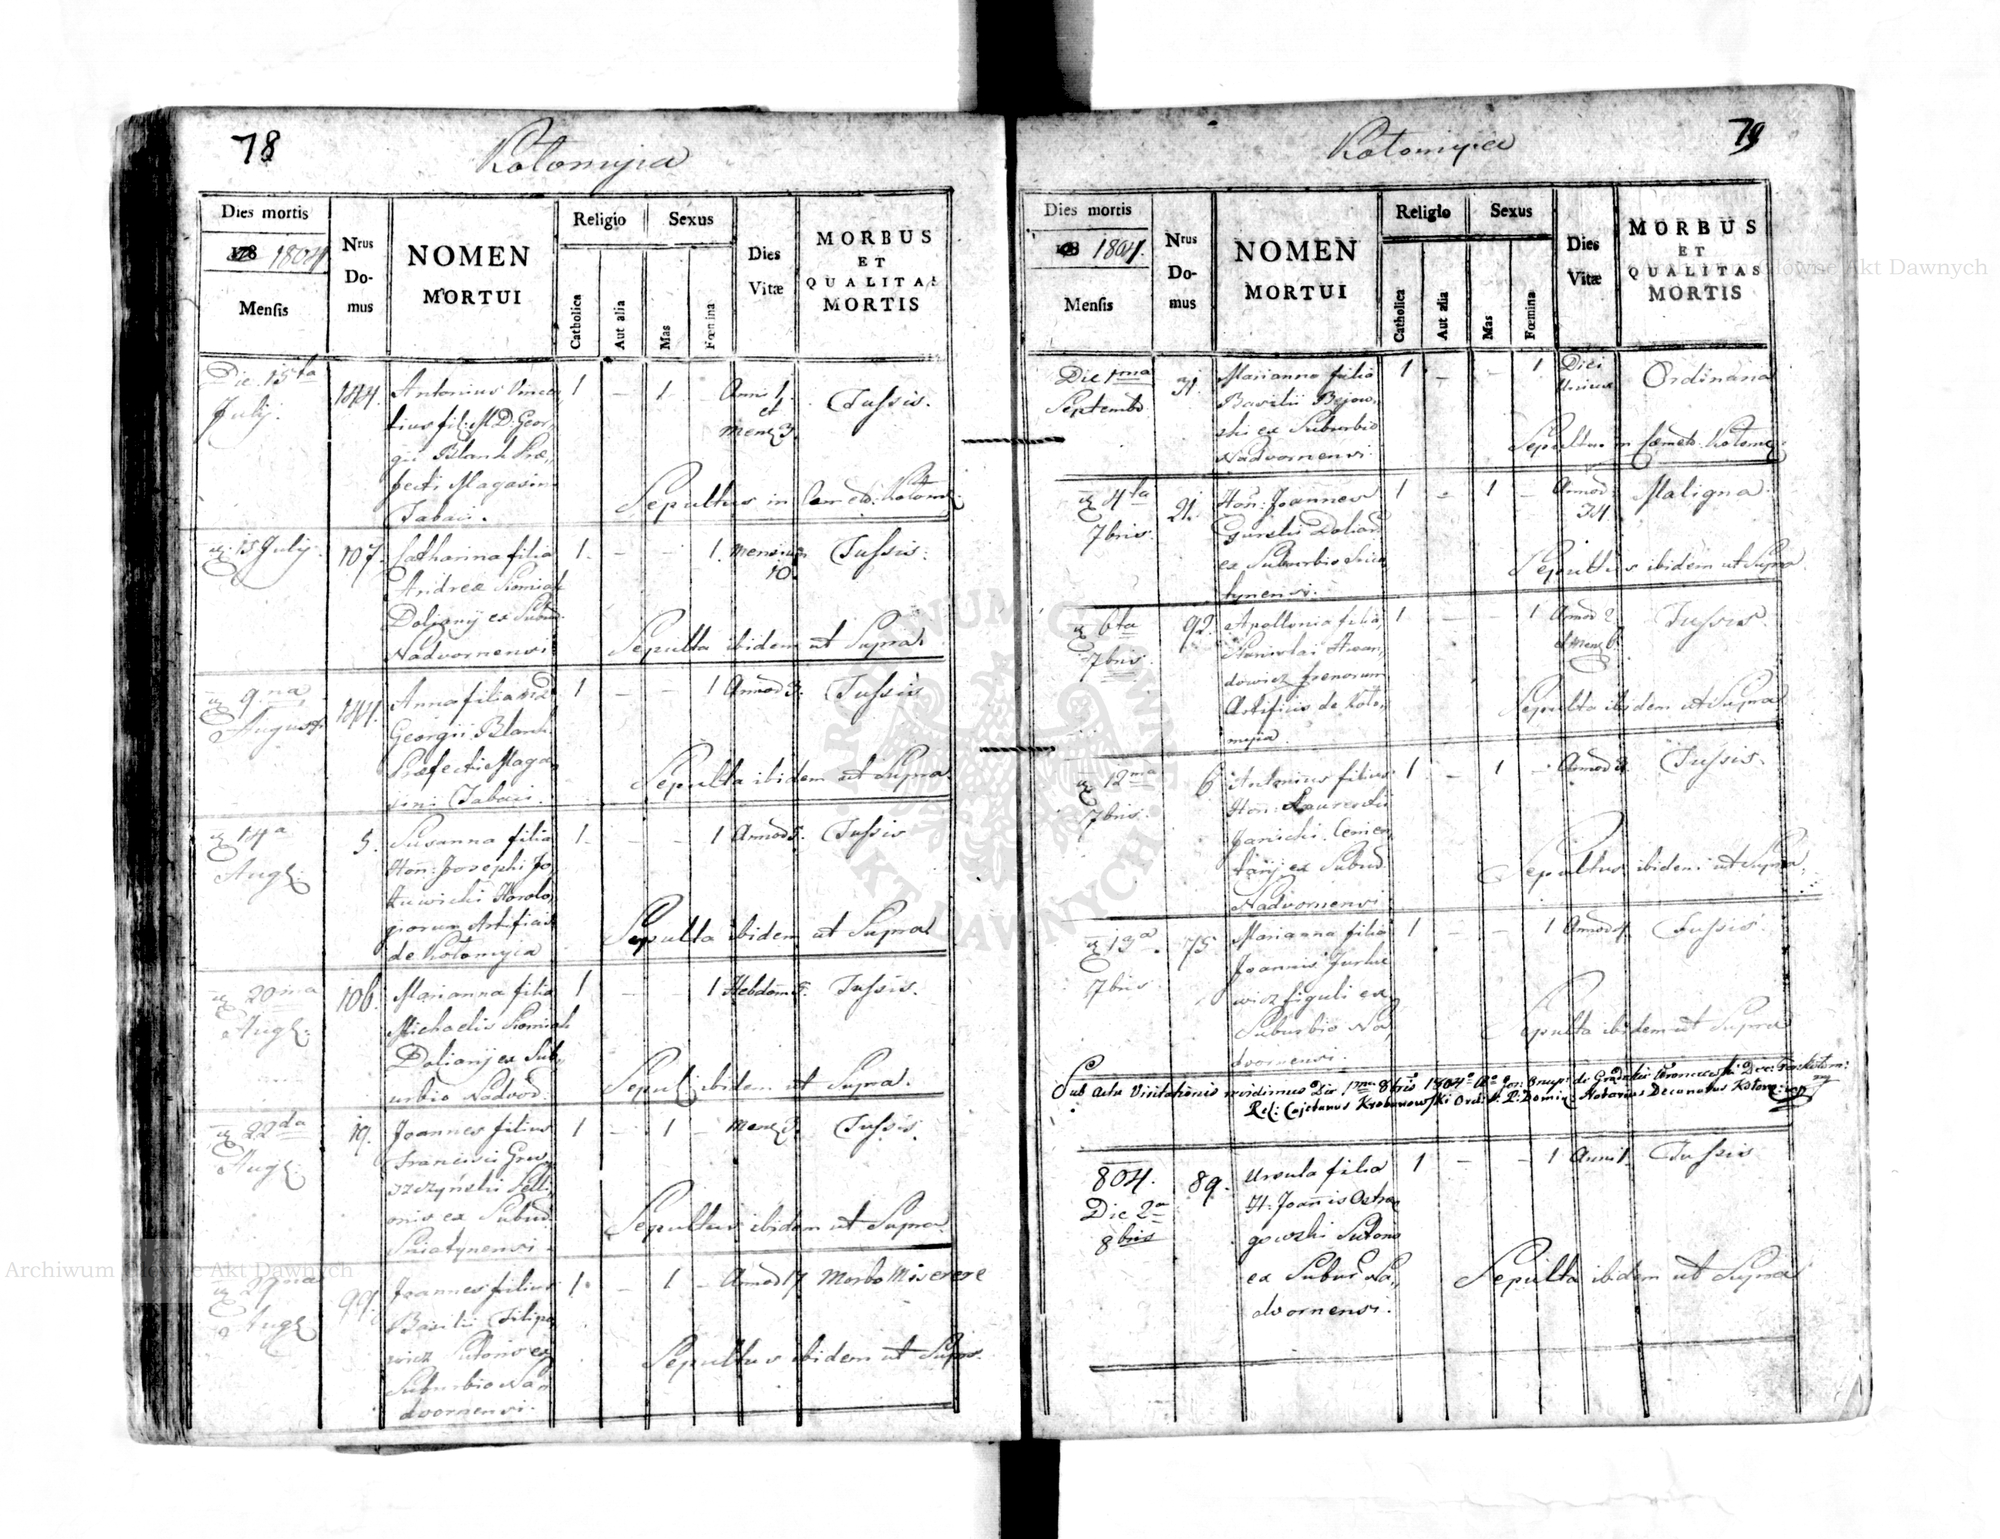 78
Kołomyja
Dies mortis
178 1804
Mensis
Nrus Domus
NOMEN
MORTUI
Religio
Catholica
Aut alia
Sexus
Mas
Fœmina
Dies Vitæ
MORBUS
ET
QUALITAS
MORTIS
Die 15ta
July.
144.
Antonius Vincen
tius fil: M.D: Geor,
gii Blank Præ,
fecti Magasin
Tabaci.
1 – 1 –
Anni 1.
et
Mens 3.
Tussis.
Sepultus in Cœmet: Kołom:
15 July.
107.
Catharina filia
Andreæ Slomiak
Doliarij ex Subur.
Nadvornensi
1. – – 1.
Mensium
10.
Tussis.
Sepulta ibidem ut Supra.
9na
August.
144.
Anna filia M.D.
Georgii Blank
Præfecti Maga,
sini Tabaci.
1 – – 1
Annor 3.
Tussis
Sepulta ibidem ut Supra
14a
Aug.
5.
Susanna filia
Hon: Josephi
Horolo,
giorum Artificis
de Kołomyia
1 – – 1
Annor 5.
Tussis
Sepulta ibidem ut Supra
20ma
Aug.
106.
Marianna filia
Michaelis Slomiak
Doliarij ex Sub,
urbio Nadvor.
1 – – 1
Hebdom 5.
Tussis.
Sepul: ibidem ut Supra.
22da
Aug.
19.
Joannes filius
Francisci
Pelli,
onis ex Subur.
Sniatynensi
1 – 1 –
Mens 3.
Tussis.
Sepultus ibidem ut Supra
29na
Aug.
99.
Joannes filius
Basilii Filipo,
wicz Sutoris ex
Suburbio Na,
dvornensi.
1. – 1 –
Annor 17
Morbo Miserere
Sepultus ibidem ut Supra.
79
Kołomyja
Dies mortis
178 1804.
Mensis
Nrus Domus
NOMEN
MORTUI
Religio
Catholica
Aut alia
Sexus
Mas
Fœmina
Dies Vitæ
MORBUS
ET
QUALITAS
MORTIS
Die 1ma
Septemb.
31.
Marianna filia
Basilii Bejow,
ski ex Suburbio
Nadvornensi
1 – – 1
Diei
Unius
Ordinaria
Sepultus in Cœmet: Kołom:
4ta
7bris.
21.
Hon: Joannes
Doliar.
ex Suburbio Snia
tynensi.
1 – 1 –
Annor
34.
Maligna.
Sepultus ibidem ut Supra
6ta
7bris.
92.
Apollonia filia
Nicolai
dowicz frenorum
Artificis de Koło,
myia.
1 – – 1
Annor 2.
et Mens 6.
Tussis.
Sepulta ibidem ut Supra
12ma
7bris.
6
Antonius filius
Hon: Laurentii
Janicki Cemen,
tarij ex Subur.
Nadvornensi
1 – 1 –
Annor 2.
Tussis.
Sepultus ibidem ut Supra.
13a
7bris
75
Marianna filia
Joannis Jurke
wicz figuli ex
Suburbio Na,
dvornensi.
1 – – 1
Annor 4.
Tussis.
Sepulta ibidem ut Supra
Sub actu Visitationis vidimus Die 1ma 8bris 1804
804.
Die 2a
8bris
89.
Ursula filia
H: Joannis Ostro
gowski Sutoris
ex Subur Na,
dvornensi.
1 – – 1
Anni 1.
Tussis
Sepulta ibidem ut Supra
Archiwum Główne Akt Dawnych
Archiwum Główne Akt Dawnych
ARCHIWUM GŁÓWNE AKT DAWNYCH